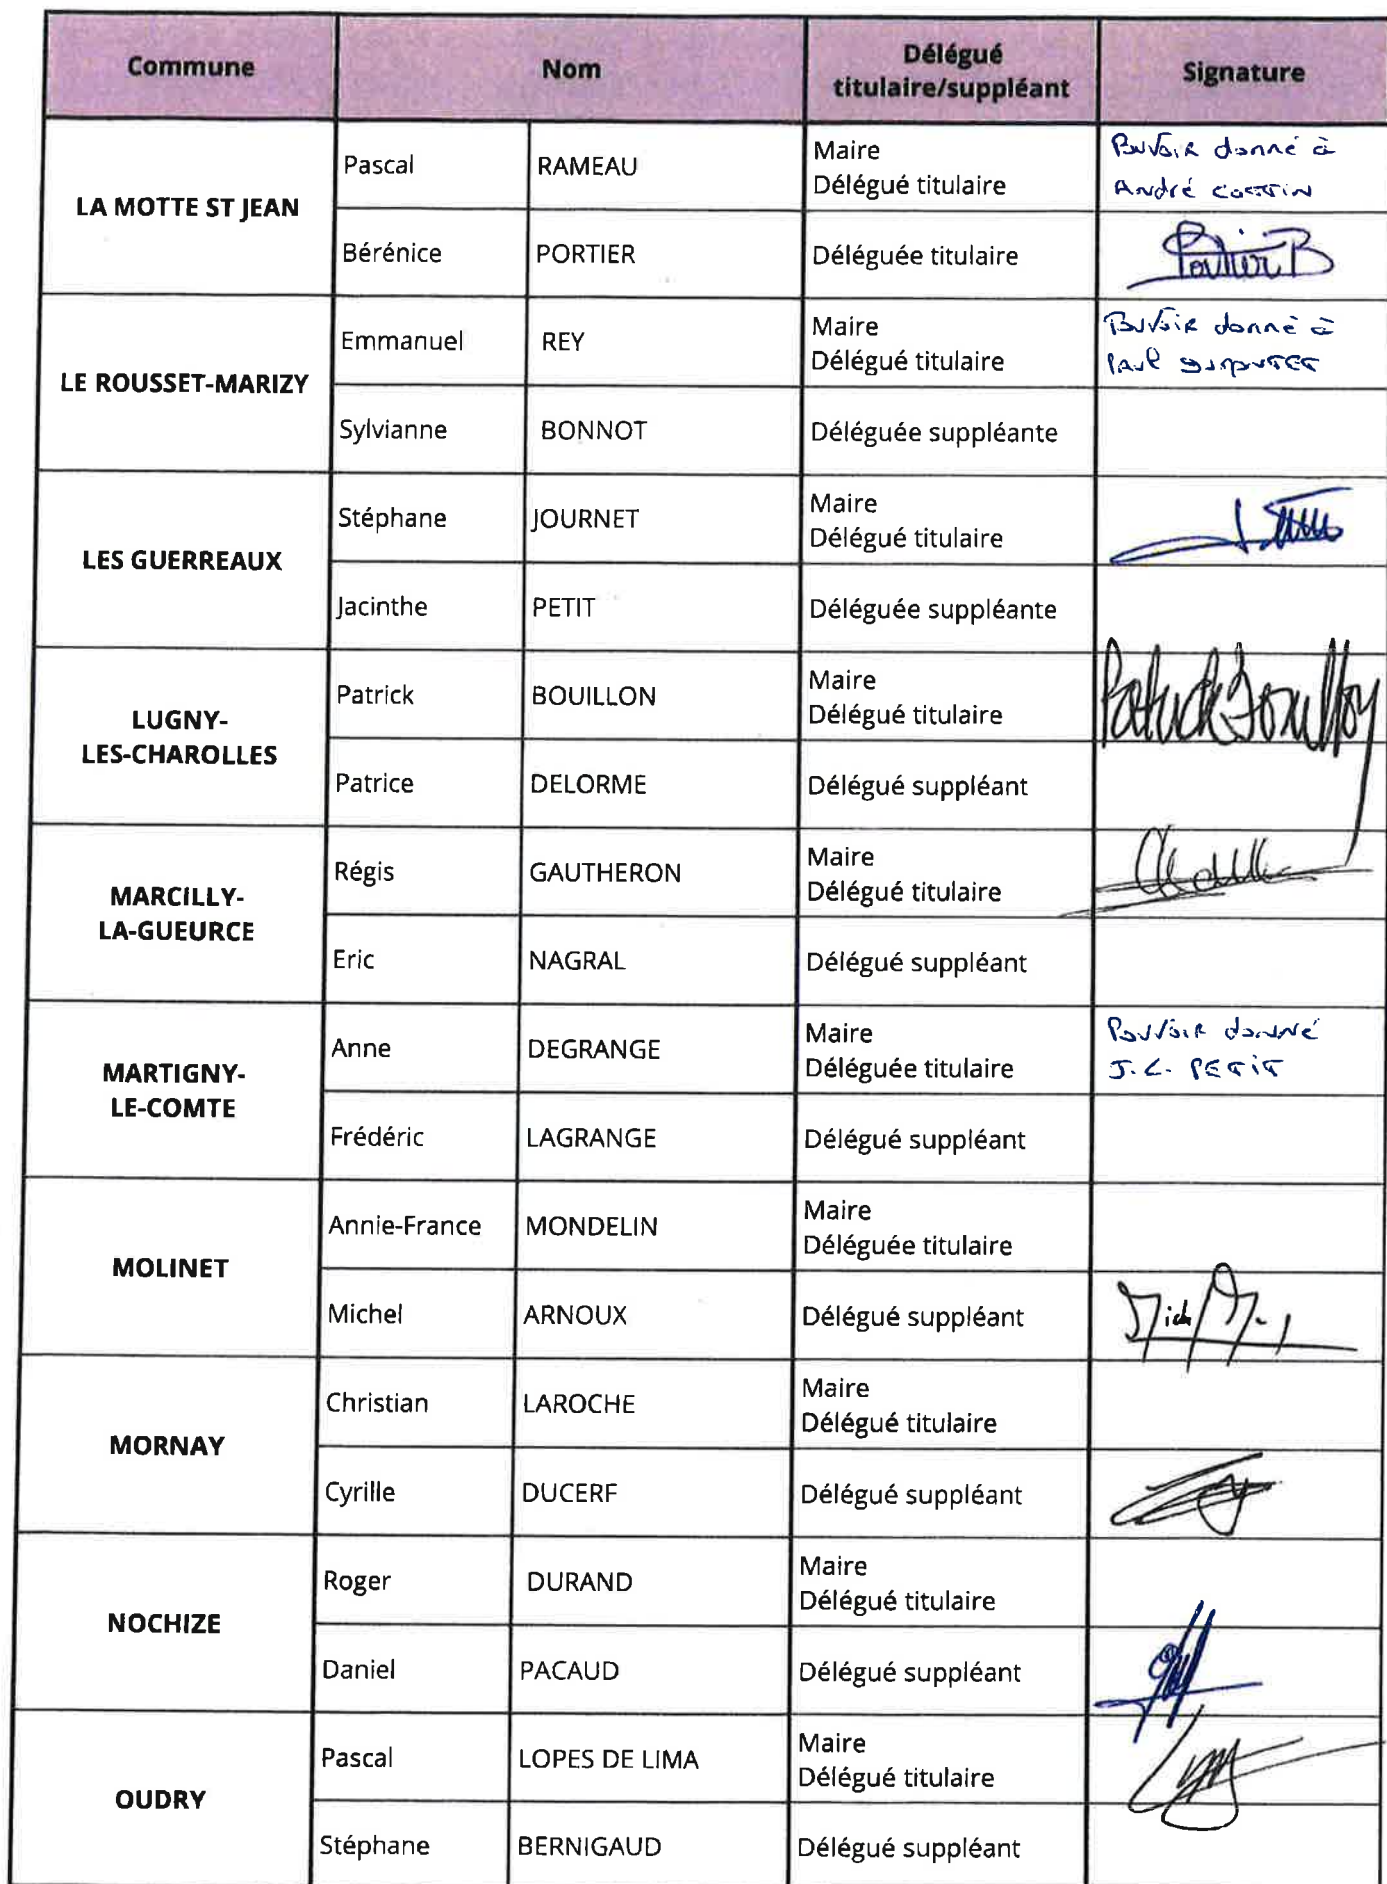 Commune Nom Délégué titulaire/suppléant Signature
LA MOTTE ST JEAN
Pascal RAMEAU Maire
Délégué titulaire
Pouvoir donné à
André COTTIN
Bérénice PORTIER Déléguée titulaire
Portier B
LE ROUSSET-MARIZY
Emmanuel REY Maire
Délégué titulaire
Pouvoir donné à
Paul
Sylvianne BONNOT Déléguée suppléante
LES GUERREAUX
Stéphane JOURNET Maire
Délégué titulaire
Jacinthe PETIT Déléguée suppléante
LUGNY-
LES-CHAROLLES
Patrick BOUILLON Maire
Délégué titulaire
Patrice DELORME Délégué suppléant
MARCILLY-
LA-GUEURCE
Régis GAUTHERON Maire
Délégué titulaire
Eric NAGRAL Délégué suppléant
MARTIGNY-
LE-COMTE
Anne DEGRANGE Maire
Déléguée titulaire
Pouvoir donné
J.C. PETIT
Frédéric LAGRANGE Délégué suppléant
MOLINET
Annie-France MONDELIN Maire
Déléguée titulaire
Michel ARNOUX Délégué suppléant
MORNAY
Christian LAROCHE Maire
Délégué titulaire
Cyrille DUCERF Délégué suppléant
NOCHIZE
Roger DURAND Maire
Délégué titulaire
Daniel PACAUD Délégué suppléant
OUDRY
Pascal LOPES DE LIMA Maire
Délégué titulaire
Stéphane BERNIGAUD Délégué suppléant